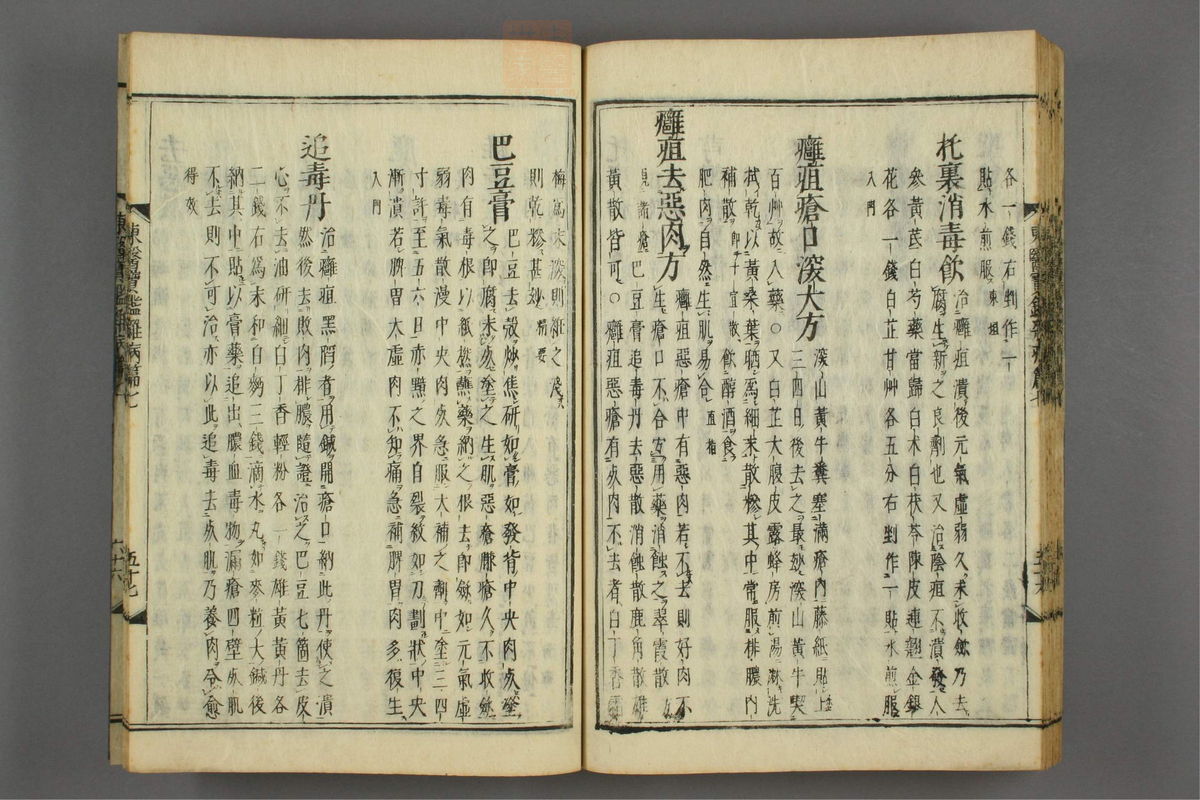 各一錢右剉作一
貼水煎服 東垣
托裏消毒飮 治癰疽潰後元氣虛弱久未收斂乃去
腐生新之良劑也又治陰疽不潰發人
參黃芪白芍藥當歸白朮白茯苓陳皮連翹金銀
花各一錢白芷甘艸各五分右剉作一貼水煎服
入門
癰疽瘡口深大方 深山黃牛糞塞滿瘡內藤紙貼上
三四日後去之最效深山黃牛喫
百艸故入藥○又白芷大腹皮露蜂房煎湯淋洗
拭乾以黃桑葉晒爲細末散摻其中常服排膿內
補散 卽十宣散 飮醇酒食
肥肉自然生肌易合 直指
癰疽去惡肉方 癰疽惡瘡中有惡肉若不去則好肉不
生瘡口不合宜用藥消蝕之翠霞散 方
見諸瘡 巴豆膏追毒丹去惡散消蝕散鹿角散雄
黃散皆可○癰疽惡瘡有惡肉不去者白丁香
梅爲末深則維之淺
則乾糝甚妙 精要
巴豆膏 巴豆去殼炒焦硏如膏如發背中央肉死塗
之卽腐未死塗之生肌惡瘡臁瘡久不收斂
肉有毒根以紙撚蘸藥納之根去卽斂如元氣虛
弱毒氣散漫中央肉死急服大補之劑中塗三四
寸許至五六日赤黯之界自裂紋如刀劃狀中央
漸潰若脾胃大虛肉不知痛急補脾胃肉多復生
入門
追毒丹 治癰疽黑陷者用鍼開瘡口納此丹使之潰
然後去敗肉排膿隨證治之巴豆七箇去皮
心不去油硏細白丁香輕粉各一錢雄黃黃丹各
二錢右爲末和白麪三錢滴水丸如麥粒大鍼後
納其中貼以膏藥追出膿血毒物漏瘡四壁死肌
不去則不可治亦以此追毒去死肌乃養肉令愈
得效